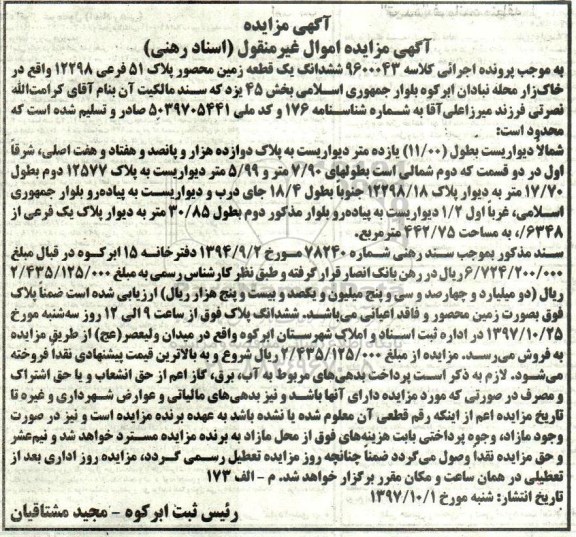 آگهی مزایده
آگهی مزایده اموال غیر منقول (اسناد رهنی)
به موجب پرونده اجرائی کلاسه ۹۶۰۰۰۴۳ ششدانگ یک قطعه زمین محصور پلاک ۵۱ فرعی ۱۲۲۹۸ واقع در
خاک‌زار محله نبادان ابرکوه بلوار جمهوری اسلامی بخش ۴۵ یزد که سند مالکیت آن بنام آقای کرامت‌الله
نصرتی فرزند میرزاعلی‌آقا به شماره شناسنامه ۱۷۶ و کد ملی ۵۰۳۹۷۰۵۴۴۱ صادر و تسلیم شده است که
محدود است:
شمالاً دیواریست بطول (۱۱/۰۰) یازده متر دیواریست به پلاک دوازده هزار و پانصد و هفتاد و هفت اصلی، شرقاً
اول در دو قسمت که دوم شمالی است بطولهای ۷/۹۰ متر و ۵/۹۹ متر دیواریست به پلاک ۱۲۵۷۷ دوم بطول
۱۷/۷۰ متر به دیوار پلاک ۱۲۲۹۸/۱۸ جنوباً بطول ۱۸/۴ جای درب و دیواریست به پیاده‌رو بلوار جمهوری
اسلامی، غرباً اول ۱/۲ دیواریست به پیاده‌رو بلوار مذکور دوم بطول ۳۰/۸۵ متر به دیوار پلاک یک فرعی از
۶۳۴۸/، به مساحت ۴۴۲/۷۵ مترمربع.
سند مذکور بموجب سند رهنی شماره ۷۸۲۴۰ مورخ ۱۳۹۴/۹/۲ دفترخانه ۱۵ ابرکوه در قبال مبلغ
۶/۷۲۴/۲۰۰/۰۰۰ ریال در رهن بانک انصار قرار گرفته و طبق نظر کارشناس رسمی به مبلغ ۲/۴۳۵/۱۲۵/۰۰۰
ریال (دو میلیارد و چهارصد و سی و پنج میلیون و یکصد و بیست و پنج هزار ریال) ارزیابی شده است ضمناً پلاک
فوق بصورت زمین محصور و فاقد اعیانی می‌باشد. ششدانگ پلاک فوق از ساعت ۹ الی ۱۲ روز سه‌شنبه مورخ
۱۳۹۷/۱۰/۲۵ در اداره ثبت اسناد و املاک شهرستان ابرکوه واقع در میدان ولیعصر(عج) از طریق مزایده
به فروش می‌رسد. مزایده از مبلغ ۲/۴۳۵/۱۲۵/۰۰۰ ریال شروع و به بالاترین قیمت پیشنهادی نقدا فروخته
می‌شود. لازم به ذکر است پرداخت بدهی‌های مربوط به آب، برق، گاز اعم از حق انشعاب و یا حق اشتراک
و مصرف در صورتی که مورد مزایده دارای آنها باشد و نیز بدهی‌های مالیاتی و عوارض شهرداری و غیره تا
تاریخ مزایده اعم از اینکه رقم قطعی آن معلوم شده یا نشده باشد به عهده برنده مزایده است و نیز در صورت
وجود مازاد، وجوه پرداختی بابت هزینه‌های فوق از محل مازاد به برنده مزایده مسترد خواهد شد و نیم‌عشر
و حق مزایده نقدا وصول می‌گردد ضمناً چنانچه روز مزایده تعطیل رسمی گردد، مزایده روز اداری بعد از
تعطیلی در همان ساعت و مکان مقرر برگزار خواهد شد. م - الف ۱۷۳
تاریخ انتشار: شنبه مورخ ۱۳۹۷/۱۰/۱
رئیس ثبت ابرکوه - مجید مشتاقیان